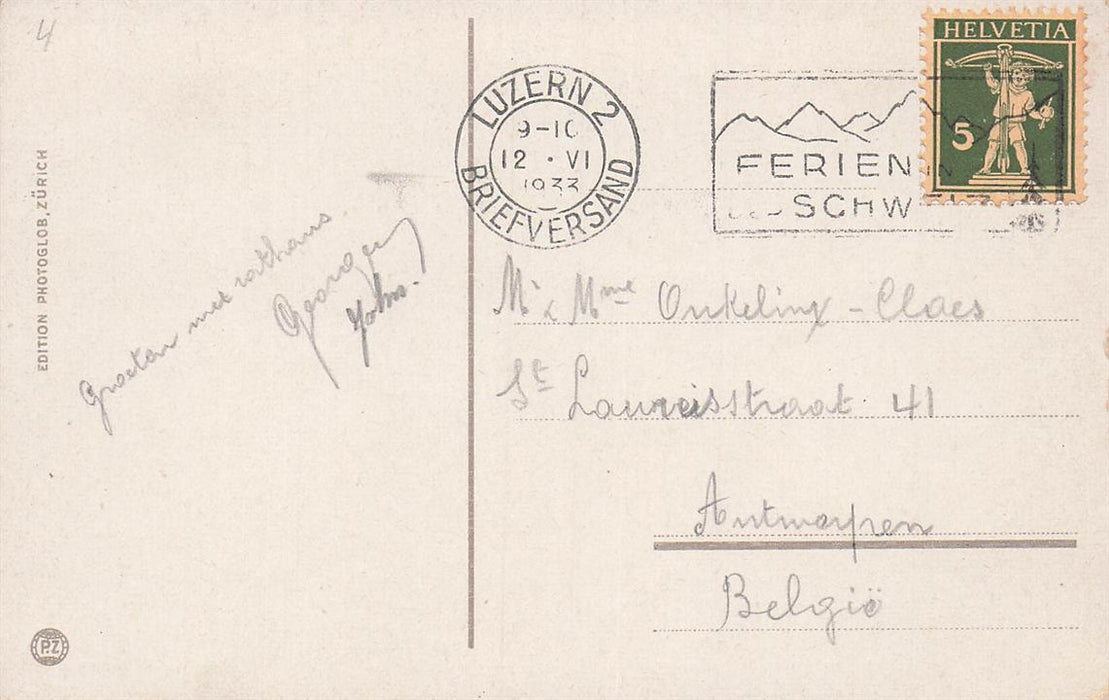 4
EDITION PHOTOGLOB, ZÜRICH
Groeten met
George
John.
P.Z
LUZERN 2
9-10
12 · VI
1933
BRIEFVERSAND
FERIEN IN
SCHW
HELVETIA
5
Mr & Mme Onkelinx - Claes
St Laureisstraat 41
Antwerpen
België